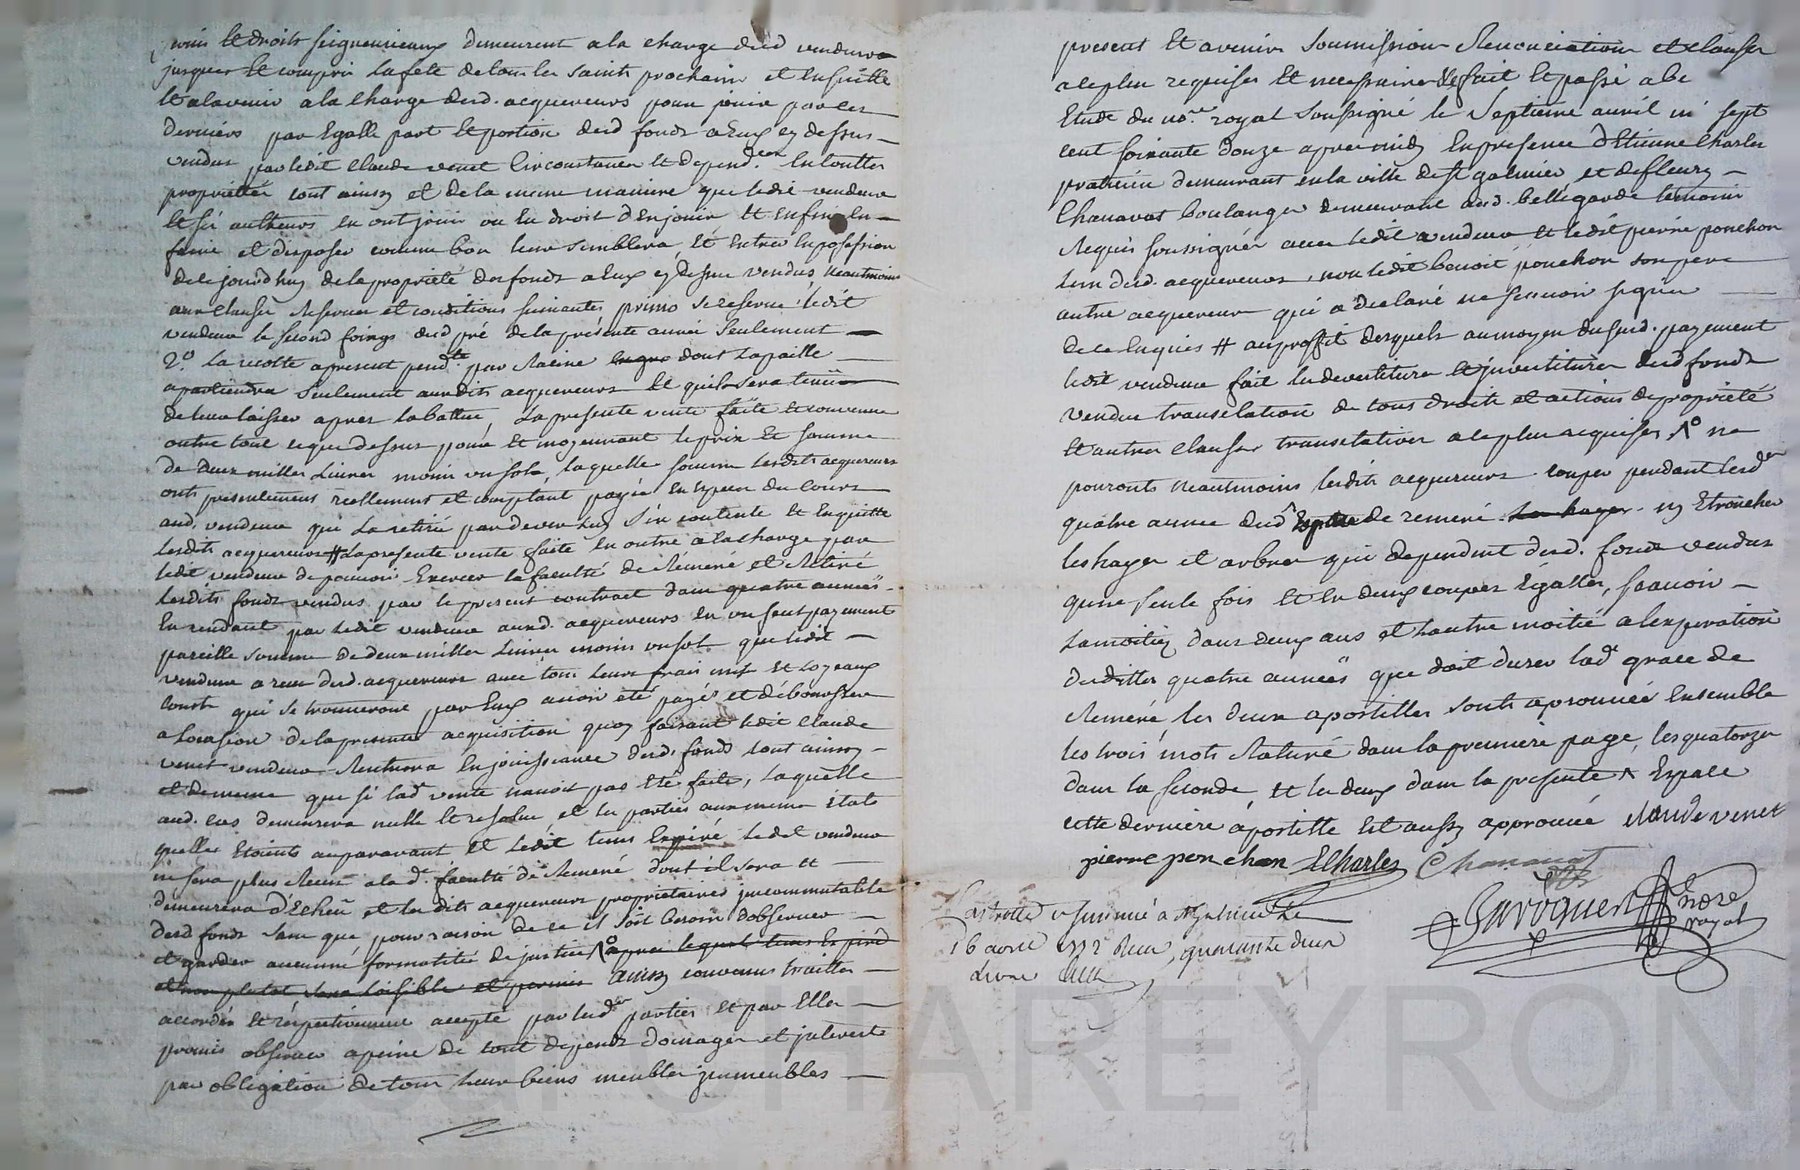 servis et droits seigneuriaux demeurent a la charge dud vendeur
jusques et compris la fete de tous les saints prochain et ensuitte
et alavenir a la charge desd. acquereurs pour jouir par ces
derniers par egalle part et portion desd fonds a eux cy dessus
vendus par ledit claude venet circonstances et dependces en touttes
proprietés tout ainsy et de la meme maniere que ledit vendeur
et ses autheurs en ont joui ou eu droit d'en jouir et enfin en
faire et disposer comme bon leur semblera et entrer en posession
de ce jourdhuy de la proprieté des fonds a eux cy dessus vendus neantmoins
aux clauses reserves et conditions suivantes primo se reserve ledit
vendeur le second foings dud pré de la présente année seulement
2o. la recolte apresent pendte par racine dont la paille
apartiendra seulement auxdits acquereurs et quil sera tenu
de leur laisser apres la battue, la presente vente faite et convenue
outre tout ce que dessus pour et moyennant le prix et somme
de deux milles Livres moins un sol, laquelle somme lesdits acquereurs
onts presentement reellement et comptant payée en especes du cours
aud. vendeur qui la retiré pardevers luy s'en contente et en quitte
lesdits acquereurs # la presente vente faite en outre a la charge par
ledit vendeur de pouvoir exercer la faculté de remeré et retiré
lesdits fonds vendus par le present contract dans quatre années
en rendant par ledit vendeur auxd. acquereurs en un seul payement
pareille somme de deux milles Livres moins un sol que ledit
vendeur a receu desd. acquereurs avec tous leurs frais mis et loyeaux
cousts qui se trouveront par eux avoir été payé et débourssés
a locasion de la presente acquisition quoy faisant ledit claude
venet vendeur rentrera en jouissance desd. fonds tout ainsy
et de meme que si lad. vente navoit pas été faite, laquelle
aud. cas demeurera nulle et resolue et les parties aux meme états
quelles étoients auparavant et ledit tems expiré ledit vendeur
ne sera plus receu a lad. faculté de remeré dont il sera et
demeurera d'echeu et lesdits acquereurs proprietaires jncommutable
desd fonds sans que pour raison de ce il soit besoin d'observer
et garder aucune formalités de justice /o apres lequels tems expiré
et non plutot sera loisible et permis ainsy convenus traittés
accordés et respectivement accepté par lesdes parties et par elles
promis observer a peine de tout depends domages et jnterests
par obligation de tous leurs biens meubles jmmeubles
present et avenir soumission renonciation et clauses
a ce plus requises et necessaires fait et passé a be
Etude du nore. royal soussigné le septieme avril mi sept
cent soixante douze apres midy en presence d'Etienne Charles
praticien demeurant en la ville de st galmier et de fleury
Chanavat boulanger demeurant aud. bellegarde temoins
requis soussignés avec ledit vendeur et ledit pierre ponchon
lun desd. acquereurs, non ledit benoit ponchon son pere
autre acquereur qui a declaré ne sçavoir signer
de ce enquis # au proffit desquels au moyen dususd. payement
ledit vendeur fait les devestitures et jnvestitures desd fonds
vendus translation de tous droits et actions de proprieté
et autres clauses translatives a ce plus requises, /o ne
pouronts neantmoins lesdits acquereurs couper pendant lesdes
quatre années dud de remeré les hayes ny Etroncher
les hayes et arbres qui dependent desd. fonds vendus
qu'une seule fois et en deux coupes Egalles, scavoir
la moitiez dans deux ans et lautre moitié a lexpiration
desdittes quatre années que doit durer lade grace de
remeré les deux apostilles sonts aprouvée ensemble
les trois mots raturé dans la premiere page, les quatorze
dans la seconde, et les deux dans la presente ^ Espace
cette derniere apostille est aussy approuvée claude venet
pierre ponchon ECharles Chanavat
Caroquet nore royal
Controllé et insinué a st galmier le
16 avril 1772 receu quarante deux
Livres
CHAREYRON